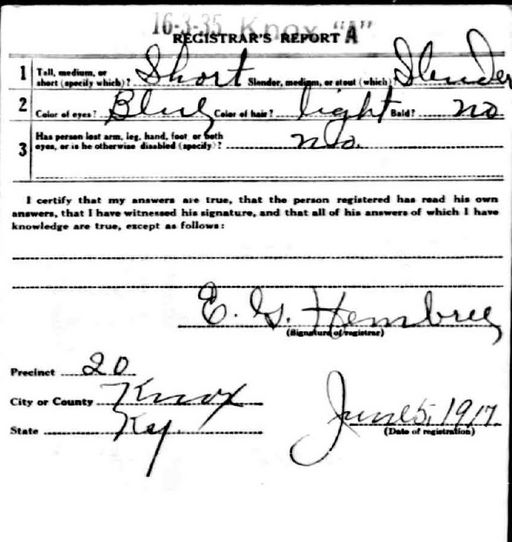 16-3-35 Knox "A"
REGISTRAR'S REPORT A
1 Tall, medium, or short (specify which)? Short Slender, medium, or stout (which) Slender
2 Color of eyes? Blue Color of hair? light Bald? no
3 Has person lost arm, leg, hand, foot or both eyes, or is he otherwise disabled (specify)? no.
I certify that my answers are true, that the person registered has read his own
answers, that I have witnessed his signature, and that all of his answers of which I have
knowledge are true, except as follows:
E. G. Hembree
(Signature of registrar)
Precinct 20
City or County Knox
State Ky.
June 5, 1917
(Date of registration)